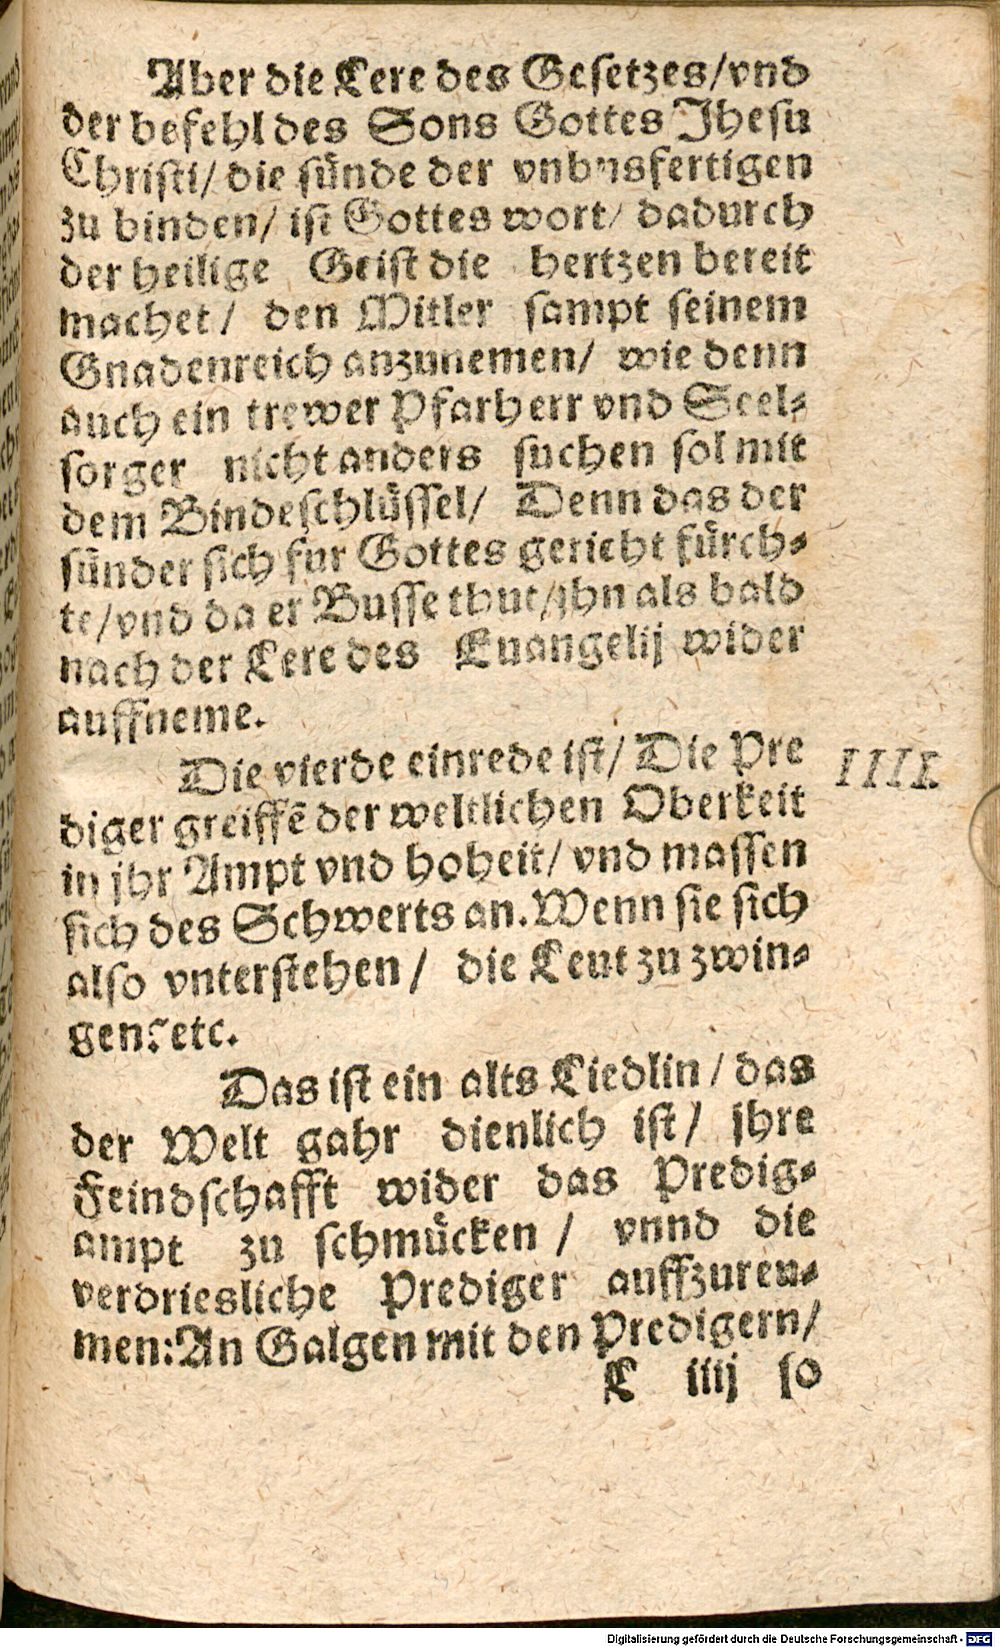 Aber die Lere des Gesetzes/vnd
der befehl des Sons Gottes Jhesu
Christi/ die sünde der vnbusfertigen
zu binden/ ist Gottes wort/ dadurch
der heilige Geist die hertzen bereit
machet/ den Mitler sampt seinem
Gnadenreich anzunemen/ wie denn
auch ein trewer Pfarherr vnd Seel⸗
sorger nicht anders suchen sol mit
dem Bindeschlüssel/ Denn das der
sünder sich fur Gottes gericht fürch⸗
te/vnd da er Busse thut/jhn als bald
nach der Lere des Euangelij wider
auffneme.
Die vierde einrede ist/ Die Pre
diger greiffẽ der weltlichen Oberkeit
in jhr Ampt vnd hoheit/ vnd massen
sich des Schwerts an. Wenn sie sich
also vnterstehen/ die Leut zu zwin⸗
gen? etc.
IIII.
Das ist ein alts Liedlin/ das
der Welt gahr dienlich ist/ jhre
Feindschafft wider das Predig⸗
ampt zu schmücken/ vnnd die
verdriesliche Prediger auffzureu⸗
men: An Galgen mit den Predigern/
C iiij so
Digitalisierung gefördert durch die Deutsche Forschungsgemeinschaft - DFG